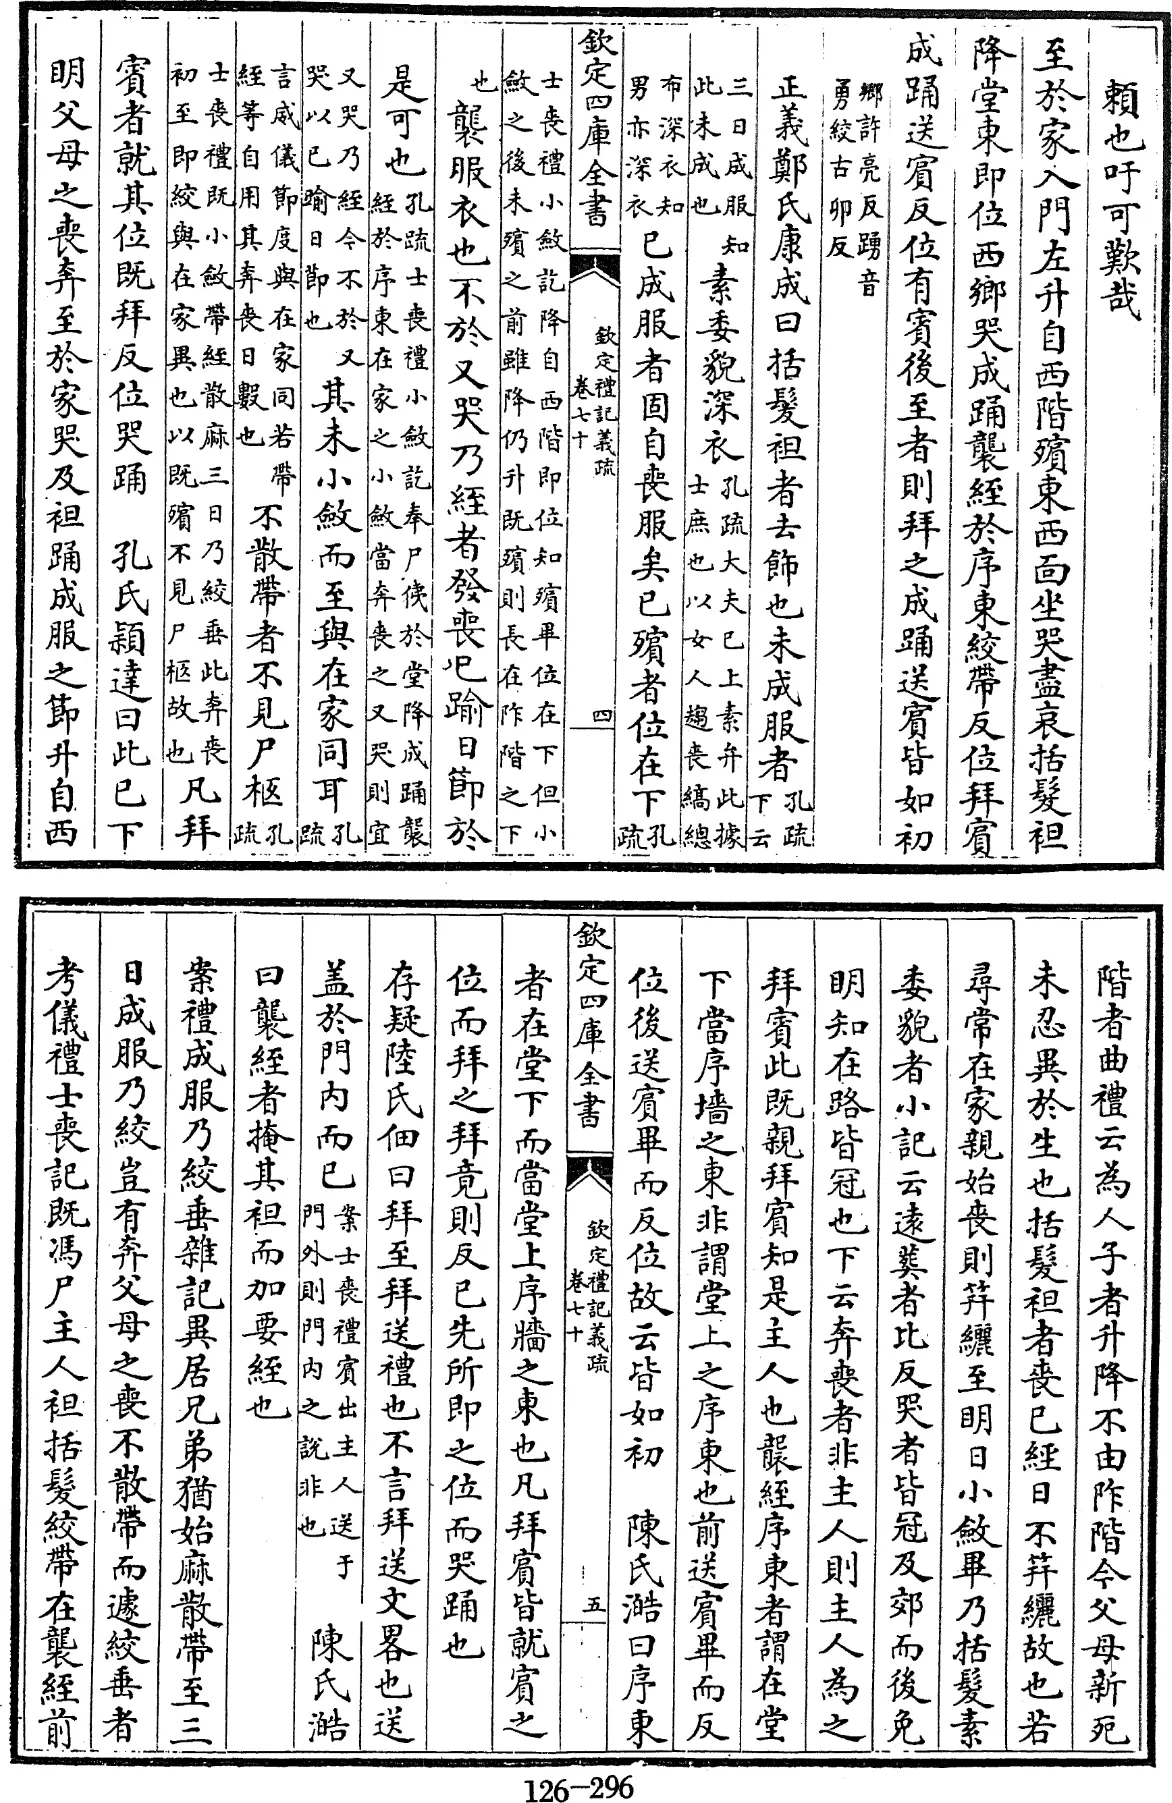 賴也吁可歎哉
至於家入門左升自西階殯東西面坐哭盡哀括髮袒
降堂東即位西鄉哭成踊襲絰於序東絞帶反位拜賓
成踊送賓反位有賓後至者則拜之成踊送賓皆如初
鄉許亮反踴音
勇絞古卯反
正義鄭氏康成曰括髮袒者去飾也未成服者孔疏下云
三日成服知此未成也素委貌深衣孔疏大夫已上素弁此據士庶也以女人趨喪縞總
布深衣知男亦深衣已成服者固自喪服矣已殯者位在下孔疏
欽定四庫全書 欽定禮記義疏 卷七十 四
士喪禮小斂訖降自西階即位知殯畢位在下但小
斂之後未殯之前雖降仍升既殯則長在阼階之下
也襲服衣也不於又哭乃絰者發喪已踰日節於
是可也孔疏士喪禮小斂訖奉尸侇於堂降成踊襲絰於序東在家之小斂當奔喪之又哭則宜
又哭乃絰今不於又哭以已踰日節也其未小斂而至與在家同耳孔疏
言威儀節度與在家同若帶絰等自用其奔喪日數也不散帶者不見尸柩孔疏
士喪禮既小斂帶絰散麻三日乃絞垂此奔喪初至即絞與在家異也以既殯不見尸柩故也凡拜
賓者就其位既拜反位哭踊 孔氏穎達曰此已下
明父母之喪奔至於家哭及袒踊成服之節升自西
階者曲禮云為人子者升降不由阼階今父母新死
未忍異於生也括髮袒者喪已經日不笄纚故也若
尋常在家親始喪則笄纚至明日小斂畢乃括髮素
委貌者小記云遠葬者比反哭者皆冠及郊而後免
明知在路皆冠也下云奔喪者非主人則主人為之
拜賓此既親拜賓知是主人也襲絰序東者謂在堂
下當序墻之東非謂堂上之序東也前送賓畢而反
位後送賓畢而反位故云皆如初 陳氏澔曰序東
欽定四庫全書 欽定禮記義疏 卷七十 五
者在堂下而當堂上序牆之東也凡拜賓皆就賓之
位而拜之拜竟則反已先所即之位而哭踊也
存疑陸氏佃曰拜至拜送禮也不言拜送文畧也送
盖於門內而已案士喪禮賓出主人送于門外則門內之說非也 陳氏澔
曰襲絰者掩其袒而加要絰也
案禮成服乃絞垂雜記異居兄弟猶始麻散帶至三
日成服乃絞豈有奔父母之喪不散帶而遽絞垂者
考儀禮士喪記既馮尸主人袒括髮絞帶在襲絰前
126-296